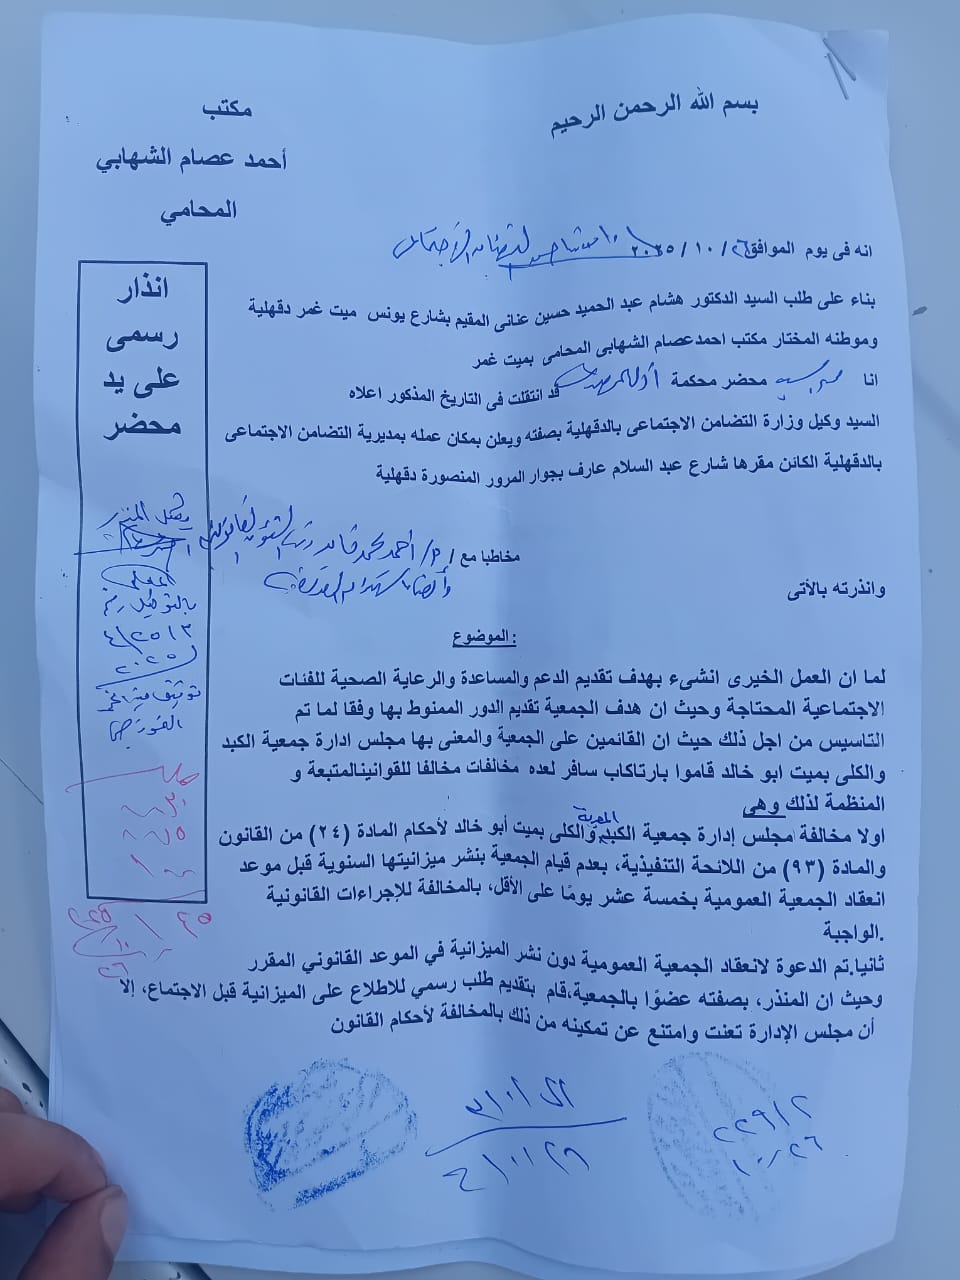 بسم الله الرحمن الرحيم
مكتب
أحمد عصام الشهابي
المحامي
انه فى يوم الموافق ٢٦ / ١٠ / ٢٠٢٥
انذار
رسمى
على يد
محضر
بناء على طلب السيد الدكتور هشام عبد الحميد حسين عنانى المقيم بشارع يونس ميت غمر دقهلية
وموطنه المختار مكتب احمدعصام الشهابى المحامى بميت غمر
انا محضر محكمة قد انتقلت فى التاريخ المذكور اعلاه
السيد وكيل وزارة التضامن الاجتماعى بالدقهلية بصفته ويعلن بمكان عمله بمديرية التضامن الاجتماعى
بالدقهلية الكائن مقرها شارع عبد السلام عارف بجوار المرور المنصورة دقهلية
مخاطبا مع / أحمد محمد
وانذرته بالأتى
بالتوكيل رقم
الموضوع:
لما ان العمل الخيرى انشىء بهدف تقديم الدعم والمساعدة والرعاية الصحية للفئات
الاجتماعية المحتاجة وحيث ان هدف الجمعية تقديم الدور الممنوط بها وفقا لما تم
التاسيس من اجل ذلك حيث ان القائمين على الجمعية والمعنى بها مجلس ادارة جمعية الكبد
والكلى بميت ابو خالد قاموا بارتاكاب سافر لعده مخالفات مخالفا للقوانينالمتبعة و
المنظمة لذلك وهى
اولا مخالفة مجلس إدارة جمعية الكبد المصرية والكلى بميت أبو خالد لأحكام المادة (٢٤) من القانون
والمادة (٩٣) من اللائحة التنفيذية، بعدم قيام الجمعية بنشر ميزانيتها السنوية قبل موعد
انعقاد الجمعية العمومية بخمسة عشر يومًا على الأقل، بالمخالفة للإجراءات القانونية
الواجبة.
ثانيا.تم الدعوة لانعقاد الجمعية العمومية دون نشر الميزانية في الموعد القانوني المقرر
وحيث ان المنذر، بصفته عضوًا بالجمعية،قام بتقديم طلب رسمي للاطلاع على الميزانية قبل الاجتماع، إلا
أن مجلس الإدارة تعنت وامتنع عن تمكينه من ذلك بالمخالفة لأحكام القانون